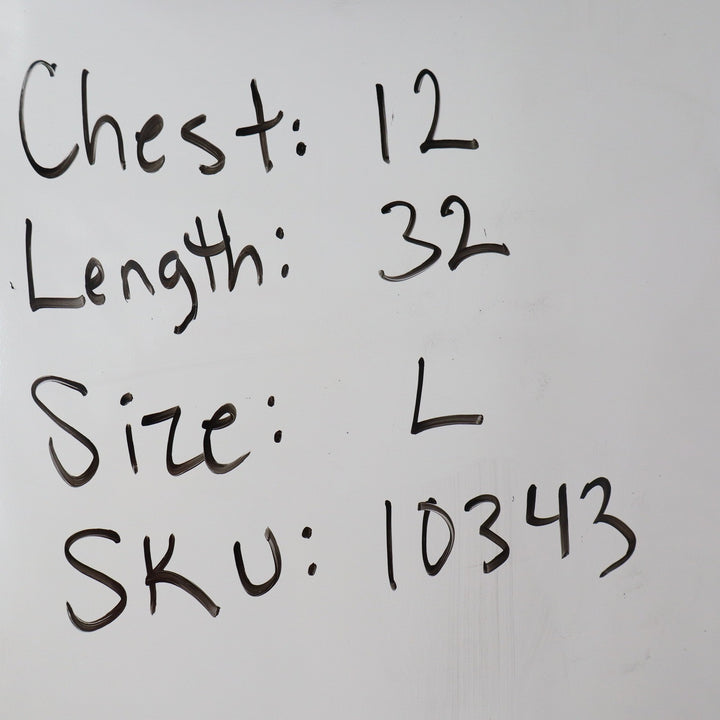 Chest: 12
Length: 32
Size: L
SKU: 10343